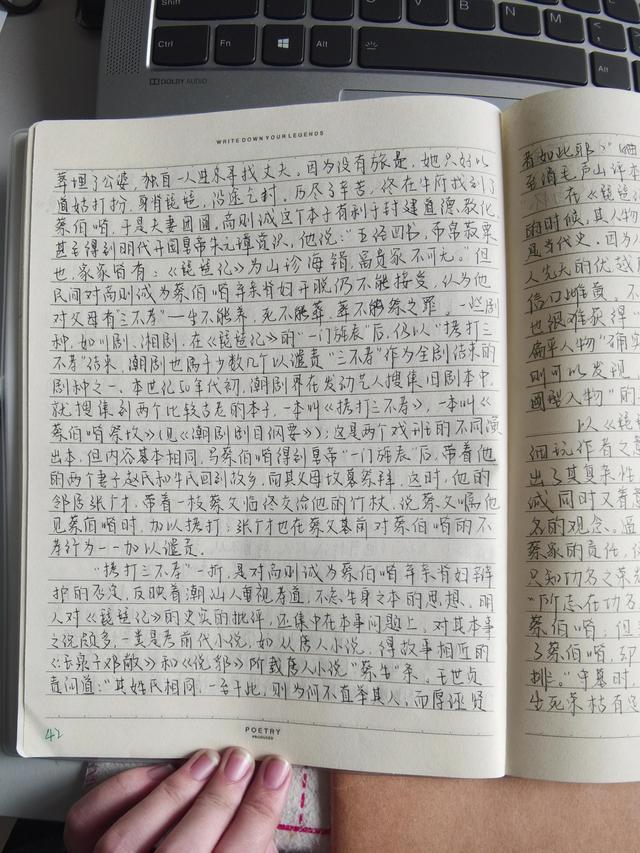 Shift
Ctrl
Fn
Alt
B
N
M
Alt
DOLBY AUDIO
WRITE DOWN YOUR LEGENDS
葬埋了公婆，独自一人进京寻找丈夫。因为没有旅费，她只好以
道姑打扮，身背琵琶，沿途乞讨，历尽了辛苦，终在牛府找到了
蔡伯喈，于是夫妻团圆。高则诚这个本子有利于封建道德教化，
甚至得到明代开国皇帝朱元璋赏识。他说：“五经四书，布帛菽粟
也，家家皆有；《琵琶记》为山珍海错，富贵家不可无。”但
民间对高则诚为蔡伯喈弃亲背妇开脱仍不能接受，认为他
对父母有“三不孝”—生不能养，死不能葬，葬不能祭之罪。一些剧
种，如川剧、湘剧，在《琵琶记》的“一门旌表”后，仍以“拷打三
不孝”结束，潮剧也属于少数几个以谴责“三不孝”作为全剧结束的
剧种之一。本世纪50年代初，潮剧界在发动艺人搜集旧剧本中，
就搜集到两个比较古老的本子，一本叫《拷打三不孝》，一本叫《
蔡伯喈祭坟》（见《潮剧剧目纲要》）；这是两个戏班的不同演
出本，但内容基本相同，写蔡伯喈得到皇帝“一门旌表”后，带着他
的两个妻子赵氏和牛氏回到故乡，向其父母坟墓祭拜，这时，他的
邻居张广才，带着一枝蔡父临终交给他的竹杖，说蔡父嘱他
见蔡伯喈时，加以拷打；张广才也在蔡父墓前对蔡伯喈的不
孝行为一一加以谴责。
“拷打三不孝”一折，是对高则诚为蔡伯喈弃亲背妇辩
护的否定，反映着潮汕人重视孝道，不忘生身之本的思想。明
人对《琵琶记》的史实的批评，还集中在本事问题上，对其本事
之说颇多，一类是考前代小说，如从唐人小说，得故事相近的
《玉泉子邓敞》和《说郛》所载唐人小说“蔡生”条。王世贞
责问道：“其姓氏相同，一至于此，则为何不直举其人，而厚诬贤
42
POETRY
PRODUCED
者如此耶？”
至消毛声山评本
在《琵
的时候，其人物
是当代史，因为
人先天的优越
也很难获得“
扁平人物”确实
则可以发现
圆型人物”的
以《琵
细玩作者之意
出了其复杂性
诚同时又有意
名的观念。
蔡家的责任，
只知功名之荣
“所志在功名
蔡伯喈，但
了蔡伯喈，却
排。”守墓时，
生死荣枯有